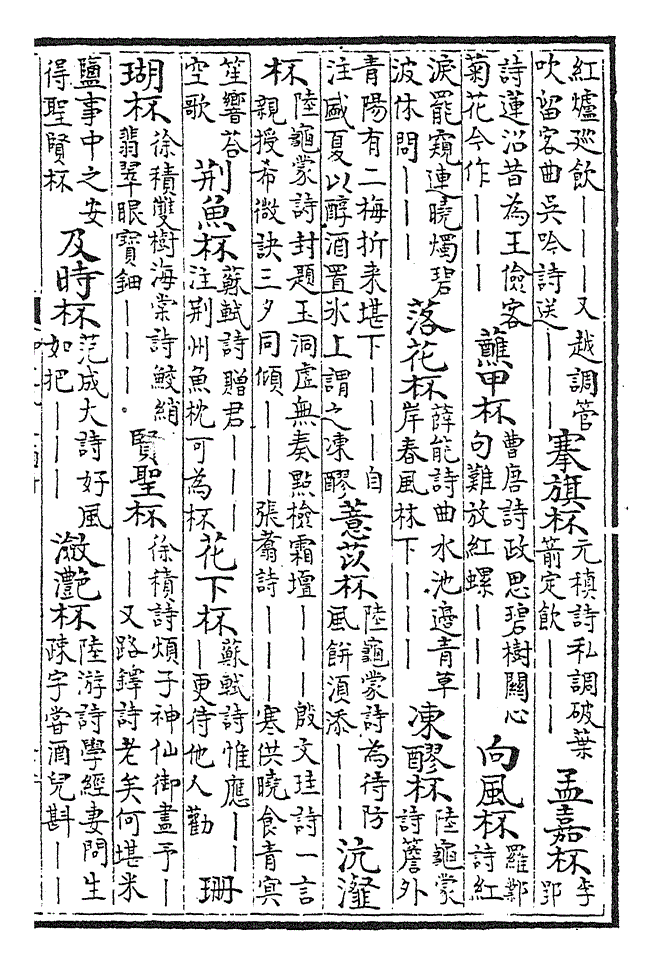 紅爐巡飲｜｜｜又越調管
吹留客曲吳吟詩送｜｜｜
搴旗杯
元稹詩私調破葉
箭定飲｜｜｜
孟嘉杯
李
郢
詩蓮沼昔為王儉客
菊花今作｜｜｜
蘸甲杯
曹唐詩政思碧樹關心
句難放紅螺｜｜｜
向風杯
羅鄴
詩紅
淚罷窺連曉燭碧
波休問｜｜｜
落花杯
薛能詩曲水池邊青草
岸春風林下｜｜｜
凍醪杯
陸龜蒙
詩簷外
青陽有二梅折来堪下｜｜｜自
注盛夏以醇酒置氷上謂之凍醪
薏苡杯
陸龜蒙詩為待防
風餅湏添｜｜｜
沆瀣
杯
陸龜蒙詩封題玉洞虛無奏點檢霜壇｜｜｜殷文珪詩一言
親授希微訣三夕同傾｜｜｜張蠙詩｜｜｜寒供曉食青㝠
笙響荅
空歌
荆魚杯
蘇軾詩贈君｜｜｜
注荆州魚枕可為杯
花下杯
蘇軾詩惟應｜｜
｜更待他人勸
珊
瑚杯
徐積雙樹海棠詩鮫綃
翡翠眼寶鈿｜｜｜
賢聖杯
徐積詩煩子神仙御盡予｜
｜｜又路鐸詩老矣何堪米
鹽事中之妄
得聖賢杯
及時杯
范成大詩好風
如把｜｜｜
潋灩杯
陸游詩學經妻問生
疎字嘗酒兒斟｜｜